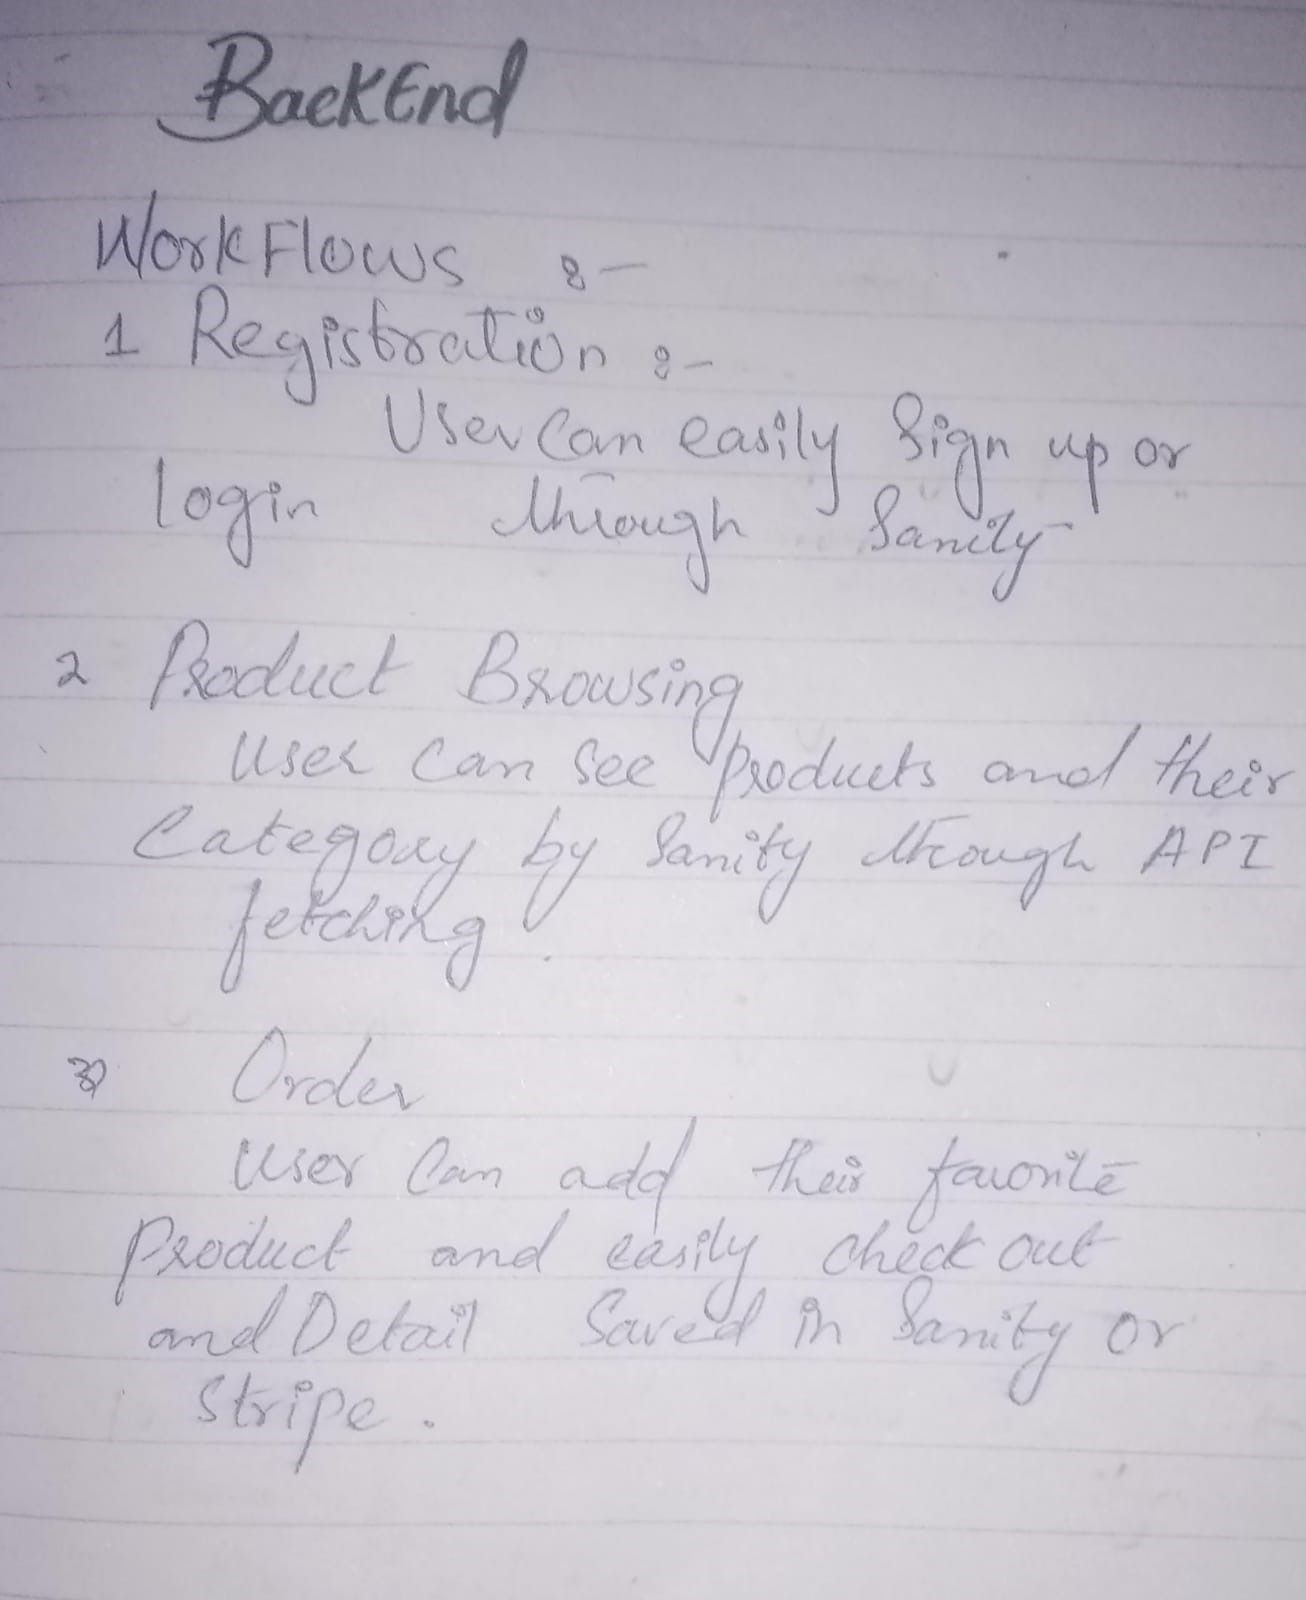 BackEnd
WorkFlows :-
1 Registration :-
User Can easily Sign up or
login through Sanity
2 Product Browsing
User Can See products and their
Category by Sanity through API
fetching.
3) Order
User Can add their favorite
Product and easily check out
and Detail Saved in Sanity or
Stripe.